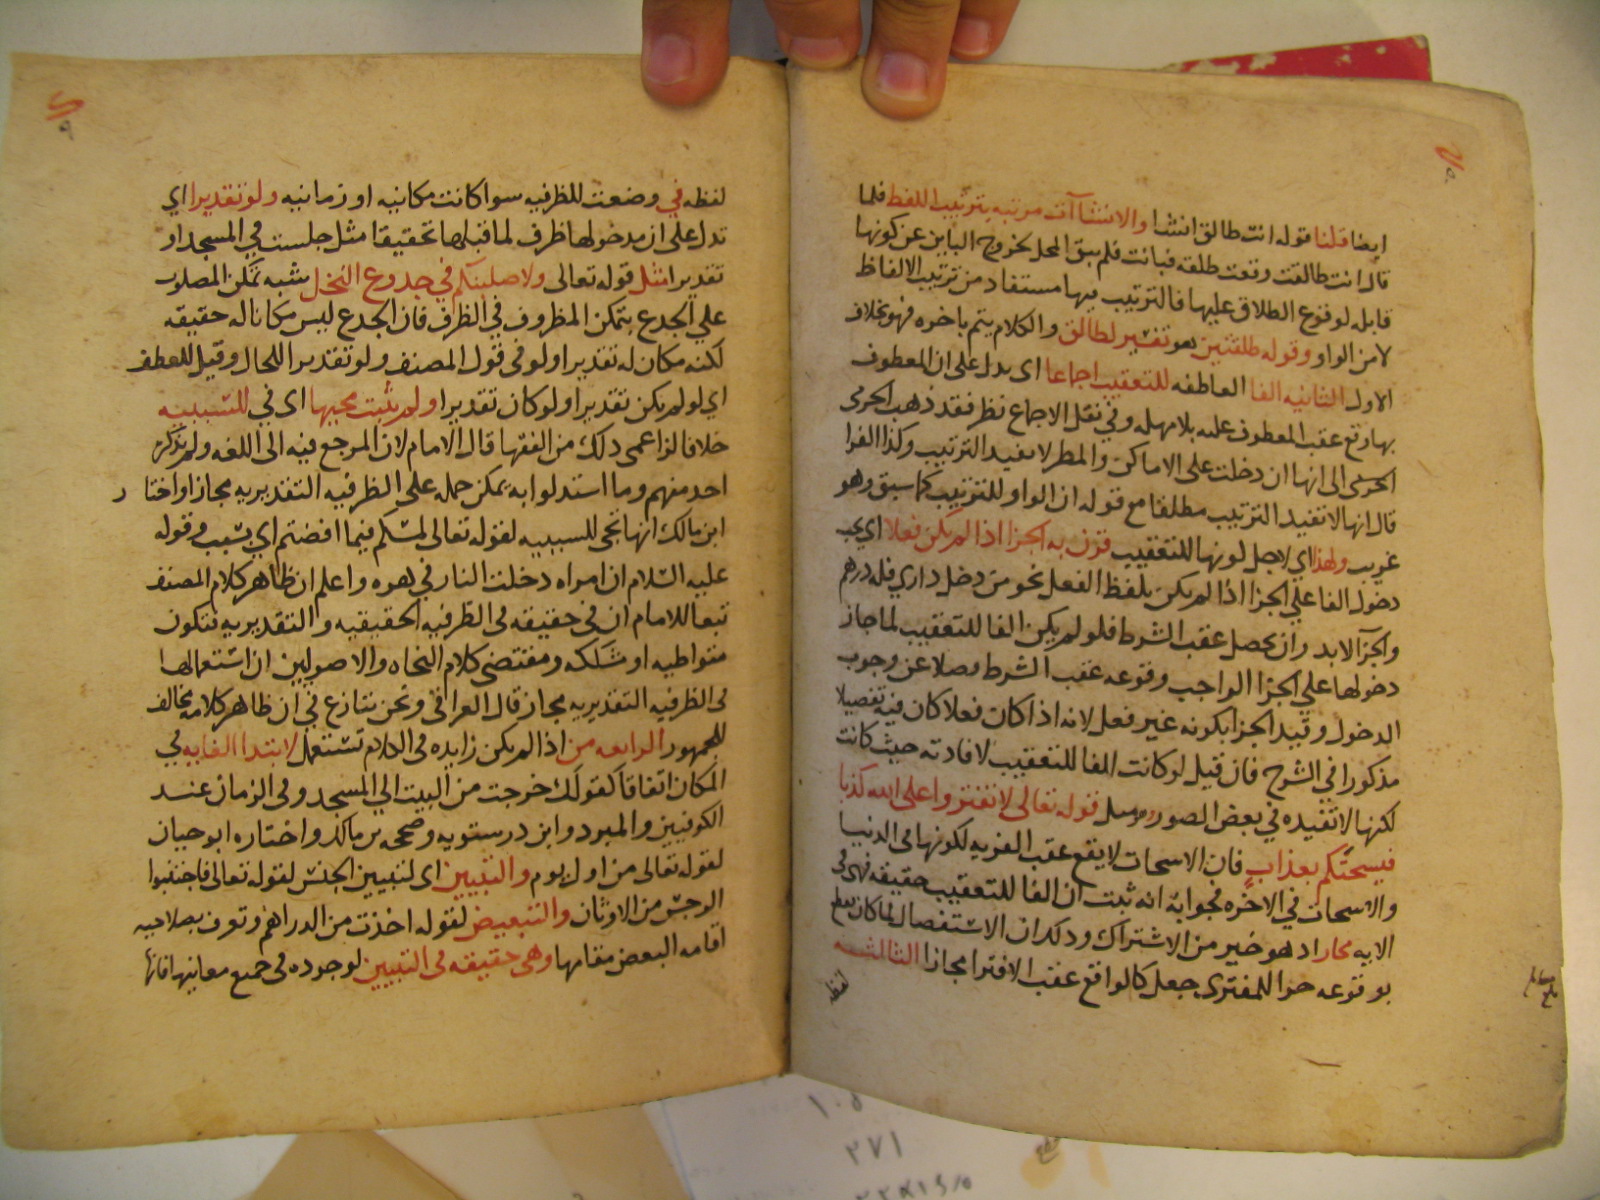 ايضا قلنا قوله انت طالق انشا والانشاآت مرتبه بترتيب اللفظ فلما
قال انت طالق وقعت طلقه فبانت فلم يبق المحل لخروج الباين عن كونها
قابله لوقوع الطلاق عليها فالترتيب فيها مستفاد من ترتيب الالفاظ
لا من الواو وقوله طلقتين تفسير لطالق والكلام يتم باخره فهو بخلاف
الاول الثانيه الفا العاطفه للتعقيب اجماعا اى يدل على ان المعطوف
بها وقع عقب المعطوف عليه بلا مهله وفي نقل الاجماع نظر فقد ذهب الجرمى
الى انها ان دخلت على الاماكن والمطر لا تفيد الترتيب وكذا الفرا
قال انها لا تفيد الترتيب مطلقا مع قوله ان الواو للترتيب كما سبق وهو
غريب ولهذا اي لاجل كونها للتعقيب قرن به الجزا اذا لم يكن فعلا اي يجب
دخول الفا علي الجزا اذا لم يكن بلفظ الفعل نحو من دخل داري فله درهم
والجزآ لا بد وان يحصل عقب الشرط فلو لم يكن الفا للتعقيب لما جاز
دخولها علي الجزا الواجب وقوعه عقب الشرط فضلا عن وجوب
الدخول وقيد الجزا بكونه غير فعل لانه اذا كان فعلا كان فيه تفصيلا
مذكورا في الشرح فان قيل لو كانت الفا للتعقيب لافادته حيث كانت
لكنها لا تفيده في بعض الصور قوله تعالى لا تفتروا على الله كذبا
فيسحتكم بعذاب فان الاسحات لا يقع عقب الفريه لكونها فى الدنيا
والاسحات في الاخره فجوابه انه ثبت ان الفا للتعقيب حقيقه فهى فى
الايه مجاز اذ هو خير من الاشتراك وذلك ان الاستفصال لما كان
بوقوعه جزا للمفترى جعل كالواقع عقب الافترا مجازا الثالثه
لفظه
لفظه في وضعت للظرفيه سوا كانت مكانيه او زمانيه ولو تقديرا اي
تدل على ان مدخولها ظرف لما قبلها تحقيقا مثل جلست في المسجد او
تقديرا مثل قوله تعالى ولاصلبنكم في جدوع النخل شبه تمكن المصلوب
علي الجدع بتمكن المظروف في الظرف فان الجدع ليس مكانا له حقيقه
لكنه مكان له تقديرا ولو فى قول المصنف ولو تقديرا للحال وقيل للعطف
اي لو لم يكن تقديرا ولو كان تقديرا ولم يثبت مجيها اى في للسببيه
خلافا لزاعمى ذلك من الفقها قال الامام لان المرجع فيه الى اللغه ولم يذكره
احد منهم وما استدلوا به يمكن حمله على الظرفيه التقديريه مجازا واختار
ابن مالك انها تجى للسببيه لقوله تعالى لمسكم فيما افضتم اي بسبب وقوله
عليه السلام ان امراه دخلت النار في هره واعلم ان ظاهر كلام المصنف
تبعا للامام ان فى حقيقه فى الظرفيه الحقيقيه والتقديريه فتكون
متواطيه او مشككه ومقتضى كلام النحاه والاصوليين ان استعمالها
فى الظرفيه التقديريه مجاز قال العراقى ونحن ننازع في ان ظاهر كلامه مخالف
للجمهور الرابعه من اذا لم يكن زايده فى الكلام تستعمل لابتدا الغايه في
المكان اتفاقا كقولك خرجت من البيت الي المسجد وفى الزمان عند
الكوفيين والمبرد وابن درستويه وصححه بن مالك واختاره ابو حيان
لقوله تعالى من اول يوم والتبيين اى لتبيين الجنس لقوله تعالى فاجتنبوا
الرجس من الاوثان والتبعيض لقوله اخذت من الدراهم وتعرف بصلاحيه
اقامه البعض مقامها وهى حقيقه فى التبيين لوجوده في جميع معانيها فانها
١٠٥
٢٧١